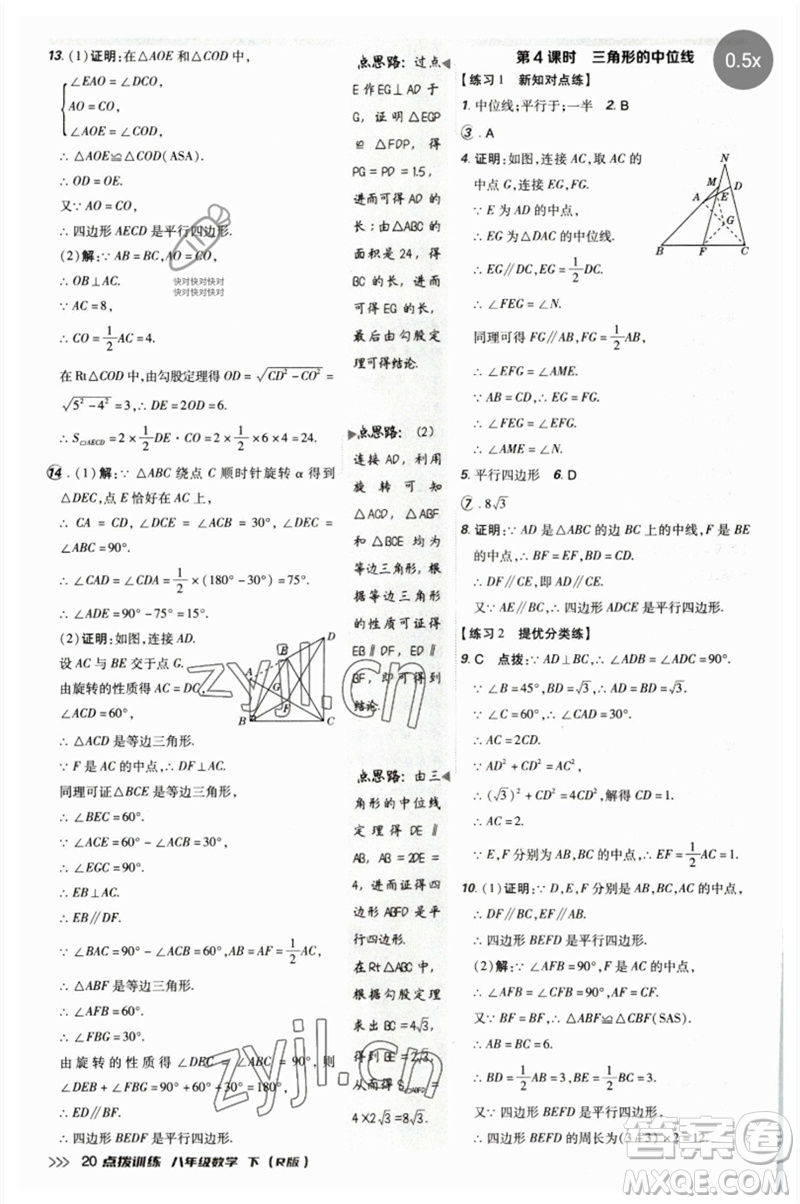 13. (1)证明:在△AOE 和△COD 中,
∠EAO = ∠DCO,
AO = CO,
∠AOE = ∠COD,
∴ △AOE≌△COD(ASA).
∴ OD = OE.
又∵ AO = CO,
∴ 四边形 AECD 是平行四边形.
(2)解:∵ AB = BC, AO = CO,
∴ OB⊥AC.
∵ AC = 8,
∴ CO = 1/2 AC = 4.
在 Rt△COD 中,由勾股定理得 OD = √(CD² − CO²) =
√(5² − 4²) = 3, ∴ DE = 2OD = 6.
∴ S▱AECD = 2 × 1/2 DE · CO = 2 × 1/2 × 6 × 4 = 24.
14. (1)解:∵ △ABC 绕点 C 顺时针旋转 α 得到
△DEC,点 E 恰好在 AC 上,
∴ CA = CD, ∠DCE = ∠ACB = 30°, ∠DEC =
∠ABC = 90°.
∴ ∠CAD = ∠CDA = 1/2 × (180° − 30°) = 75°.
∴ ∠ADE = 90° − 75° = 15°.
(2)证明:如图,连接 AD.
设 AC 与 BE 交于点 G.
由旋转的性质得
∠ACD = 60°,
∴ △ACD 是等边三角形.
∵ F 是 AC 的中点,
∴ DF⊥AC.
同理可证△BCE 是等边三角形,
∴ ∠BEC = 60°.
∴ ∠EGC = 90°.
∴ EB⊥AC.
∴ EB∥DF.
∵ ∠BAC = 90° − ∠ACB = 60°, AB = AF = 1/2 AC,
∴ △ABF 为等边三角形.
∴ ∠AFB = 60°.
∴ ∠FBG = 30°.
由旋转的性质得 ∠DEC = ∠ABC = 90°, 则
∠DEB + ∠FBG = 90° + 60° + 30° = 180°,
∴ ED∥FB.
∴ 四边形 BEDF 是平行四边形.
A
E
D
B
C
点思路: 过点
E 作 EG⊥AD 于
G, 证明 △EGP
≌ △FDP, 得
PG = PD = 1.5,
进而可得 AD 的
长; 由△ABC 的
面积是 24, 得
BC 的长, 进而
可得 EG 的长,
最后由勾股定
理可得结论.
点思路: (2)
连接 AD, 利用
旋转可得
△ACD, △ABF
和 △BCE 均为
等边三角形, 根
据等边三角形
的性质可证得
EB∥DF, ED∥
FB, 进而可得
结论.
点思路: 由三
角形的中位线
定理得 DE∥
AB, AB = 2DE =
4, 进而证得四
边形 ABFD 是平
行四边形.
在 Rt△ABC 中,
根据勾股定理
求出 BC = 4√3,
从而得 S▱ABFD =
4×2√3 = 8√3.
第 4 课时 三角形的中位线
0.5x
【练习 1 新知对点练】
1. 中位线;平行于;一半 2. B
3. A
4. 证明:如图,连接 AC,取 AC 的
中点 G,连接 EG,FG.
∵ E 为 AD 的中点,
∴ EG 为△DAC 的中位线.
∴ EG∥CD, EG = 1/2 DC.
∴ ∠FEG = ∠N.
同理可得 FG∥AB, FG = 1/2 AB.
∴ ∠EFG = ∠AME.
∵ AB = CD, ∴ EG = FG.
∴ ∠FEG = ∠EFG.
∴ ∠AME = ∠N.
N
M
D
A
E
G
B
F
C
5. 平行四边形 6. D
7. 8√3
8. 证明:∵ AD 是△ABC 的边 BC 上的中线, F 是 BE
的中点, ∴ BF = EF, BD = CD.
∴ DF∥CE,即 AD∥CE.
又∵ AE∥BC, ∴ 四边形 ADCE 是平行四边形.
【练习 2 提优分类练】
9. C 点拨:∵ AD⊥BC, ∴ ∠ADB = ∠ADC = 90°.
∵ ∠B = 45°, BD = √3, ∴ AD = BD = √3.
又∵ ∠C = 60°, ∴ ∠CAD = 30°.
∴ AC = 2CD.
∵ AD² + CD² = AC²,
∴ (√3)² + CD² = 4CD²,解得 CD = 1.
∴ AC = 2.
∵ E,F 分别为 AB,BC 的中点, ∴ EF = 1/2 AC = 1.
10. (1)证明:∵ D,E,F 分别是 AB,BC,AC 的中点,
∴ DF∥BC, EF∥AB.
∴ 四边形 BEFD 是平行四边形.
(2)解:∵ ∠AFB = 90°, F 是 AC 的中点,
∴ ∠AFB = ∠CFB = 90°, AF = CF.
又∵ BF = BF, ∴ △ABF≌△CBF(SAS).
∴ AB = BC = 6.
∴ BD = 1/2 AB = 3, BE = 1/2 BC = 3.
又∵ 四边形 BEFD 是平行四边形,
∴ 四边形 BEFD 的周长为(3+3)×2 = 12.
快对快对快对
快对快对快对
zyjl.cn
zyjl.cn
答案卷
20 点拨训练 八年级数学 下 (R版)